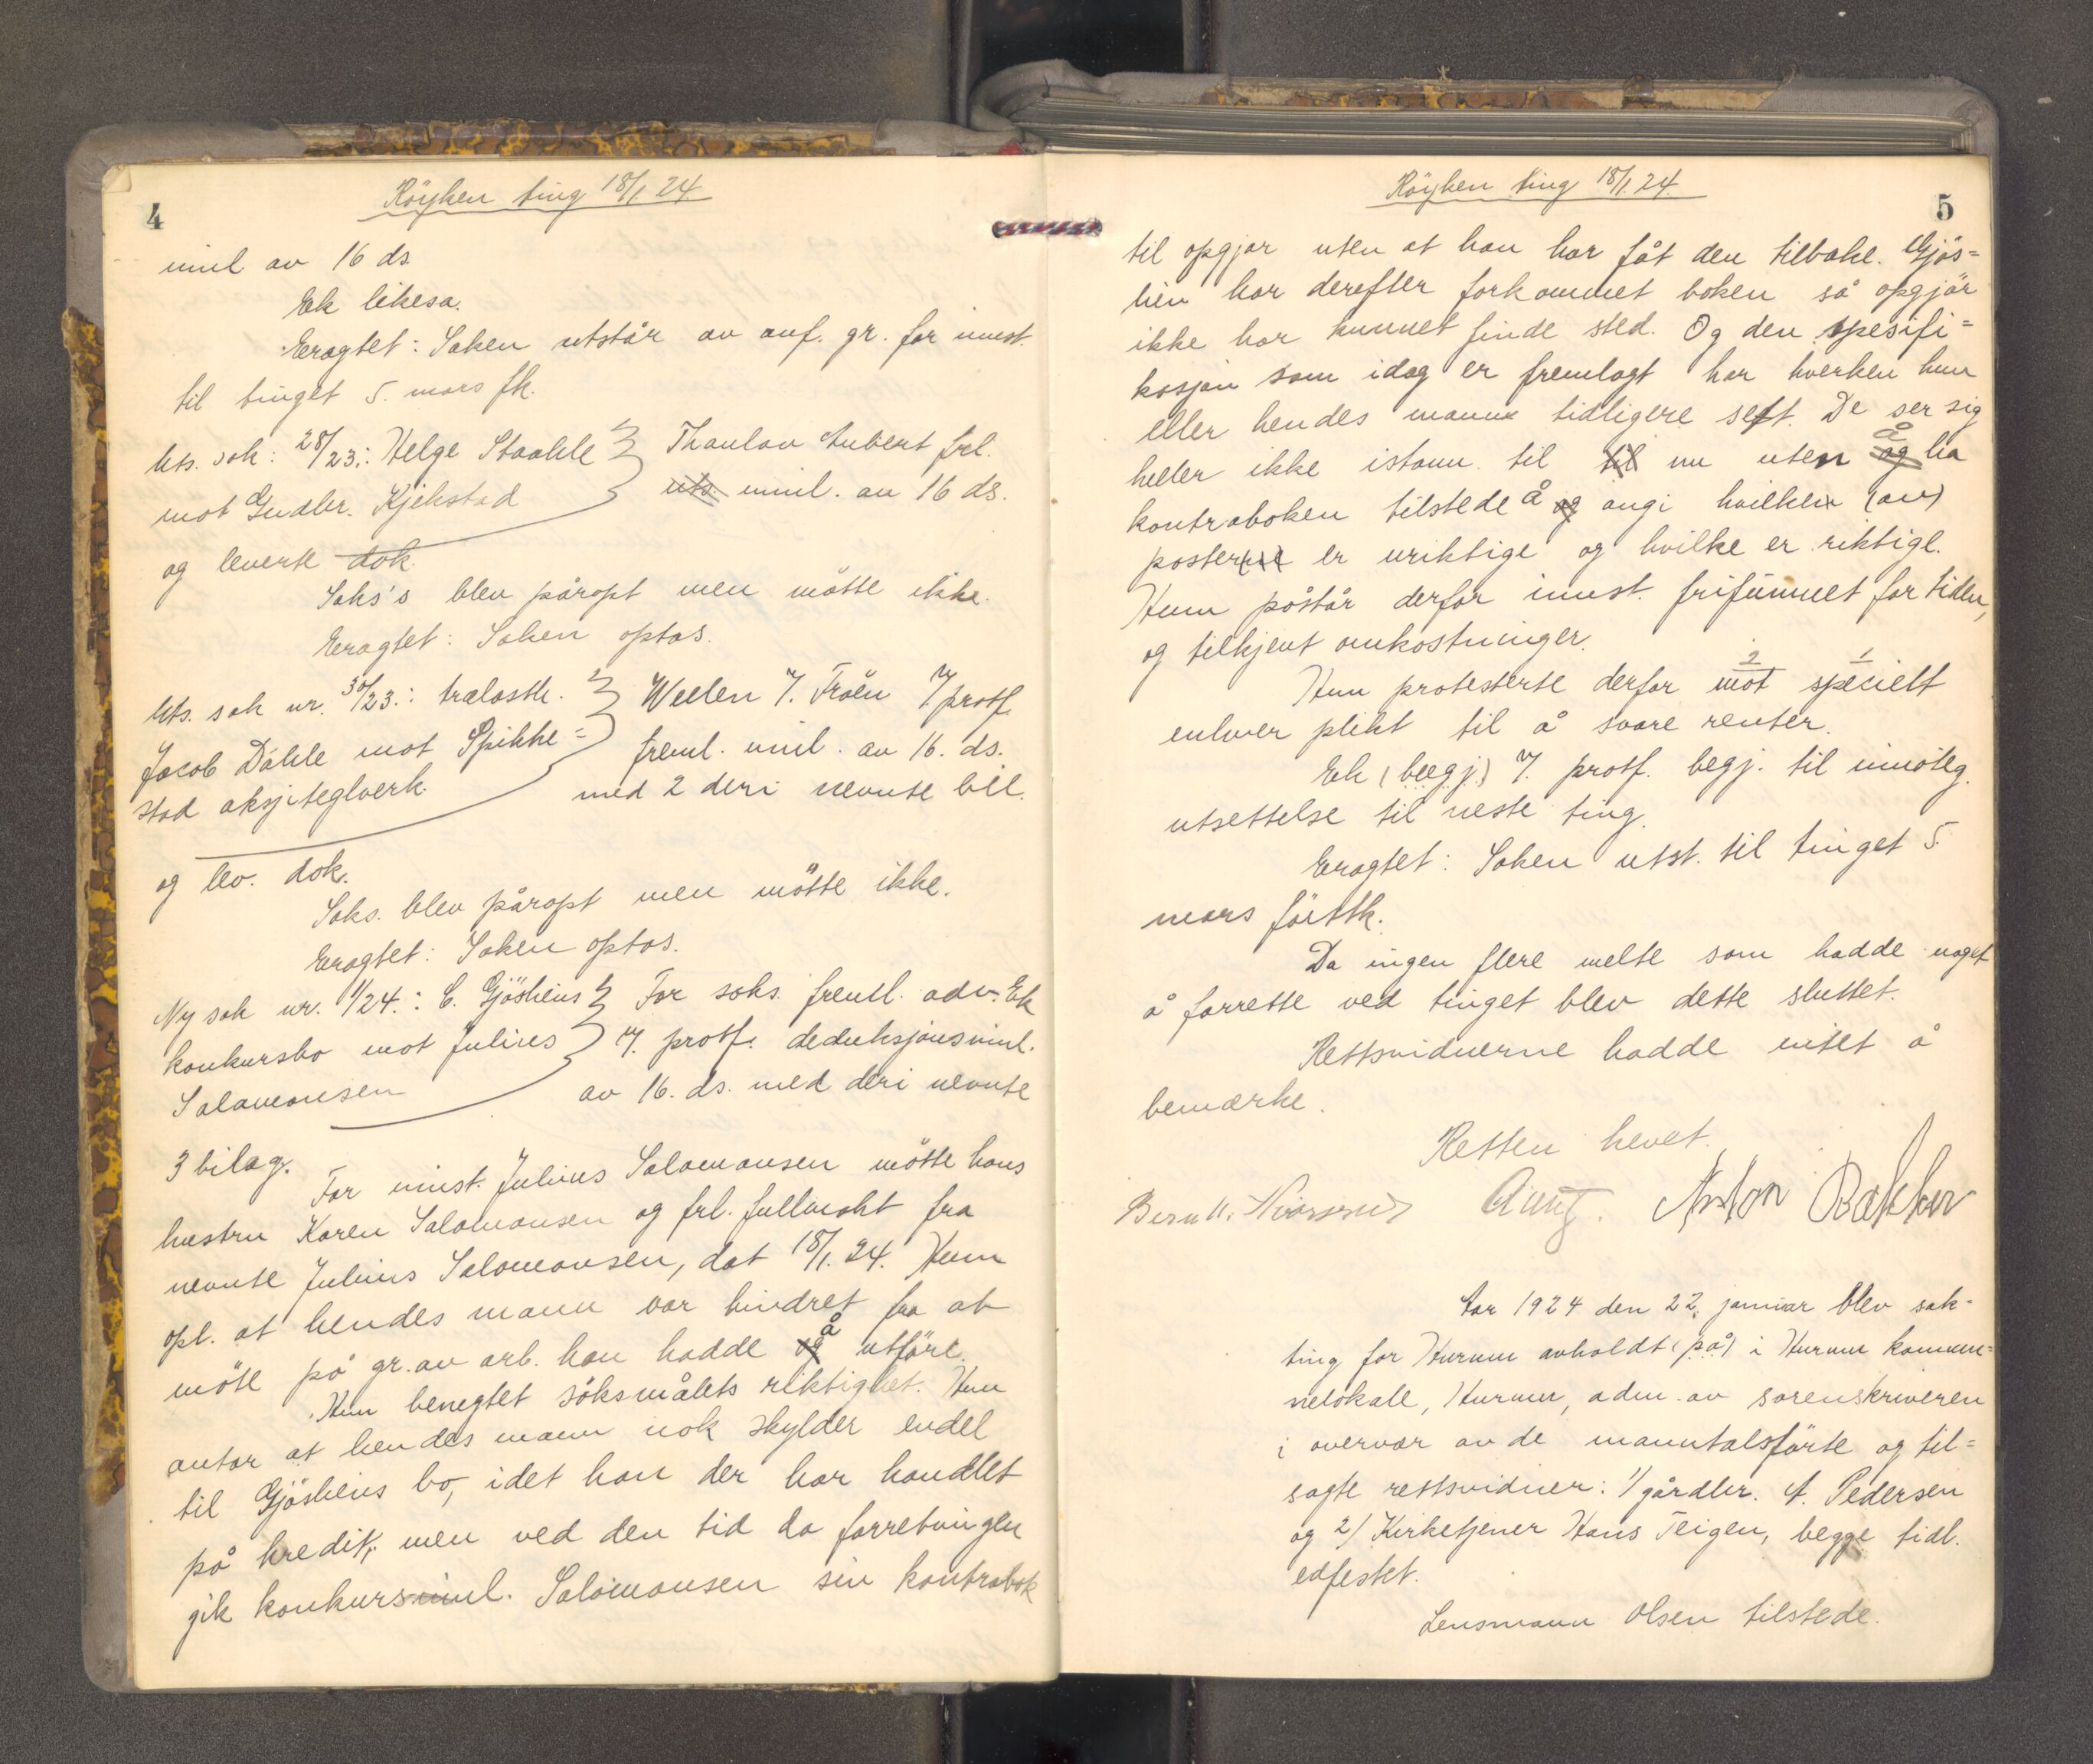 4
Röyken ting 18/1 24.
innl av 16 ds
Ek likesa.
Eragtet: Saken utstår av anf. gr. for innst.
til tinget 5. mars fk.
Uts. sak: 28/23: Helge Staahle
mot Gudbr. Kjekstad
Thaulov Aubert frl.
uts. innl. av 16 ds.
og leverte dok.
Saks's blev påropt men mötte ikke.
Eragtet: Saken optas.
Uts. sak nr. 30/23.: trælastk.
Jacob Dähle mot Spikke=
stad aksjeteglverk.
Wellen f. Fröen f. protf.
freml. innl. av 16. ds.
med 2 deri nevnte bil.
og lev. dok.
Saks. blev påropt men mötte ikke.
Eragtet: Saken optas.
Ny sak nr. 1/24.: C. Gjösheins
konkursbo mot Julius
Salamonsen
For saks. freml. adv. Ek
f. protf. deduksjonsinnl.
av 16. ds. med deri nevnte
3 bilag.
For innst. Julius Salamonsen mötte hans
hustru Karen Salamonsen og frl. fullmakt fra
nevnte Julius Salomonsen, dat 18/1. 24. Hun
opl. at hendes mann var hindret fra at
möte på gr. av arb. han hadde og å utföre.
Hun benegtet söksmålets riktighet. Hun
antar at hendes mann nok skylder endel
til Gjösheins bo, idet han der har handlet
på kredit, men ved den tid da forretningen
gik konkurs innl. Salomonsen sin kontrabok
5
Röyken ting 18/1. 24.
til opgjør uten at han har fåt den tilbake. Gjös=
hein har derefter forkommet boken så opgjör
ikke har kunnet finde sted. Og den spesifi=
kasjon som idag er fremlagt har hverken hun
eller hendes mann tidligere sett. De ser sig
heller ikke istann til til nu uten og å ha
kontraboken tilstede å og angi hvilken (av)
posterne er uriktige og hvilke er riktige.
Hun påstår derfor innst. frifunnet for tiden,
og tilkjent omkostninger.
Hun protesterte derfor mot 2 specielt 1
enhver plikt til å svare renter.
Ek (begj.) f. protf. begj. til imøteg.
utsettelse til neste ting.
Eragtet: Saken utst. til tinget 5.
mars förstk.
Da ingen flere melte som hadde noget
å forrette ved tinget blev dette sluttet.
Rettsvidnerne hadde intet å
bemærke.
Retten hevet.
Anton Bakken
Aar 1924 den 22. januar blev sak-
ting for Hurum avholdt (på) i Hurum kommu=
nelokale, Hurum, adm. av sorenskriveren
i overvær av de manntalsförte og til=
sagte rettsvidner: 1/ gårdbr. A. Pedersen
og 2/ Kirketjener Hans Teigen, begge tidl.
edfestet.
Lensmann Olsen tilstede.